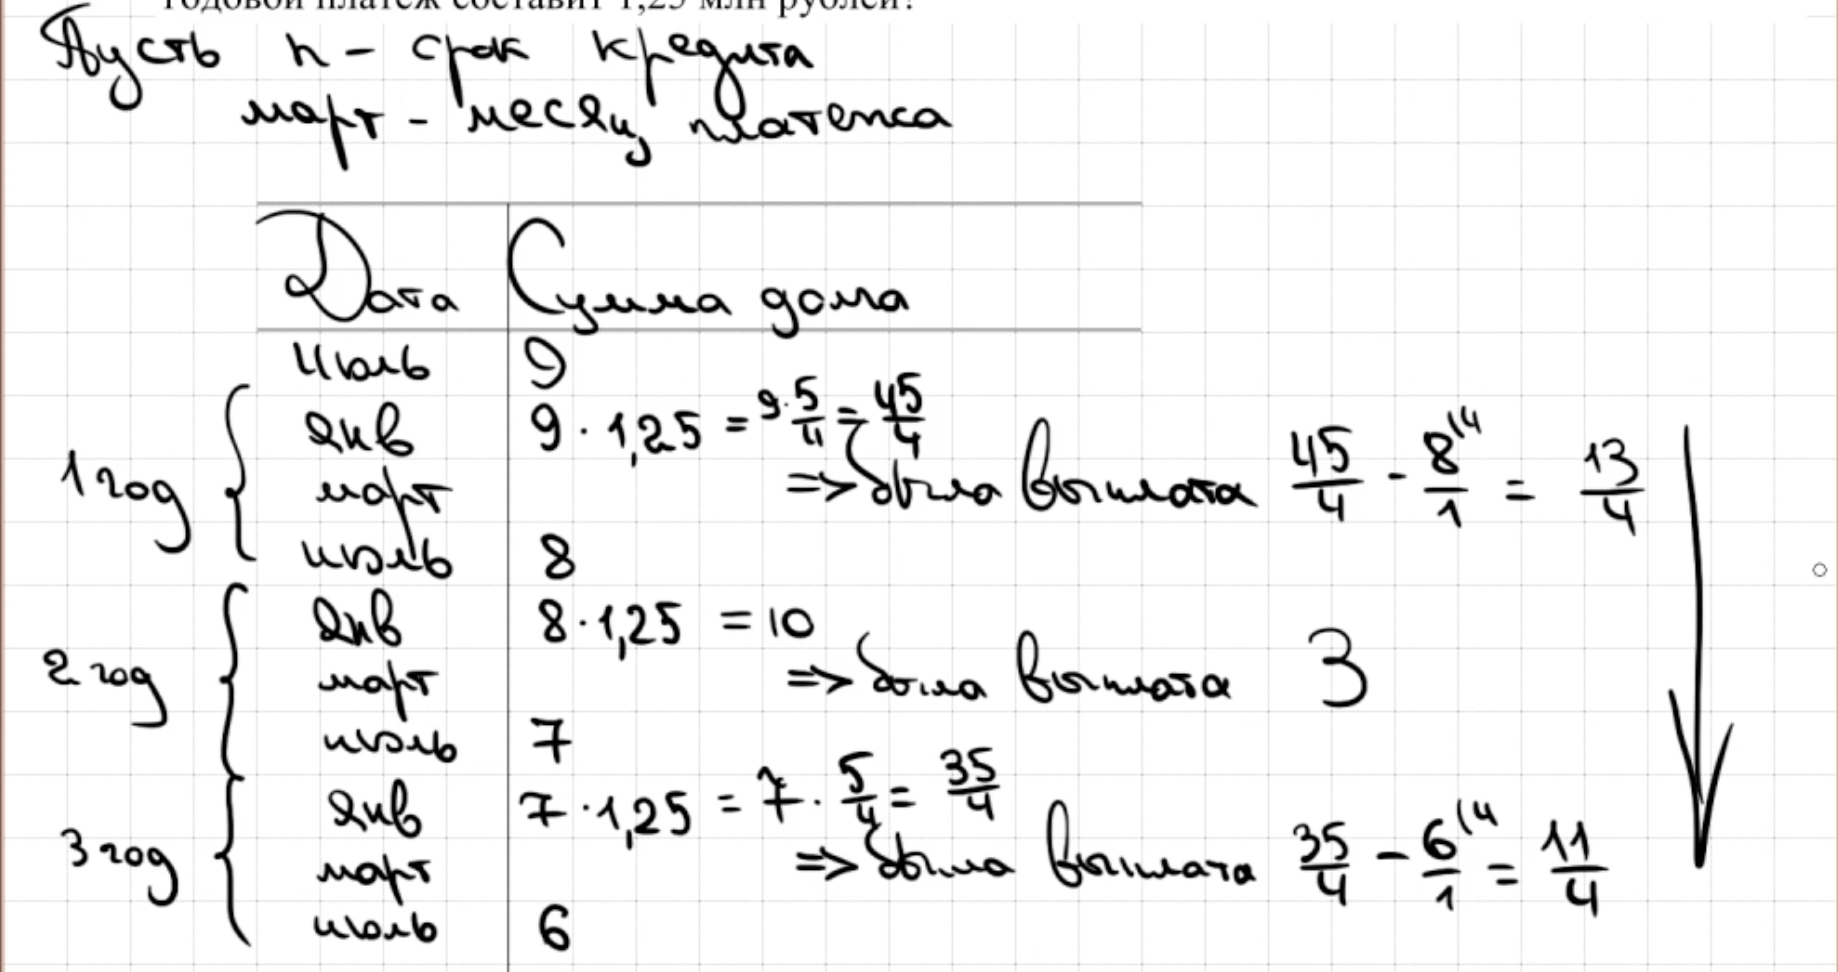 годовой платеж составит 1,25 млн рублей?
Пусть n - срок кредита
март - месяц платежа
Дата Сумма долга
Июль 9
1 год
янв 9 · 1,25 = 9 · 5/4 = 45/4
март => была выплата 45/4 - 8/1 |4 = 13/4
июль 8
2 год
янв 8 · 1,25 = 10
март => была выплата 3
июль 7
3 год
янв 7 · 1,25 = 7 · 5/4 = 35/4
март => была выплата 35/4 - 6/1 |4 = 11/4
июль 6